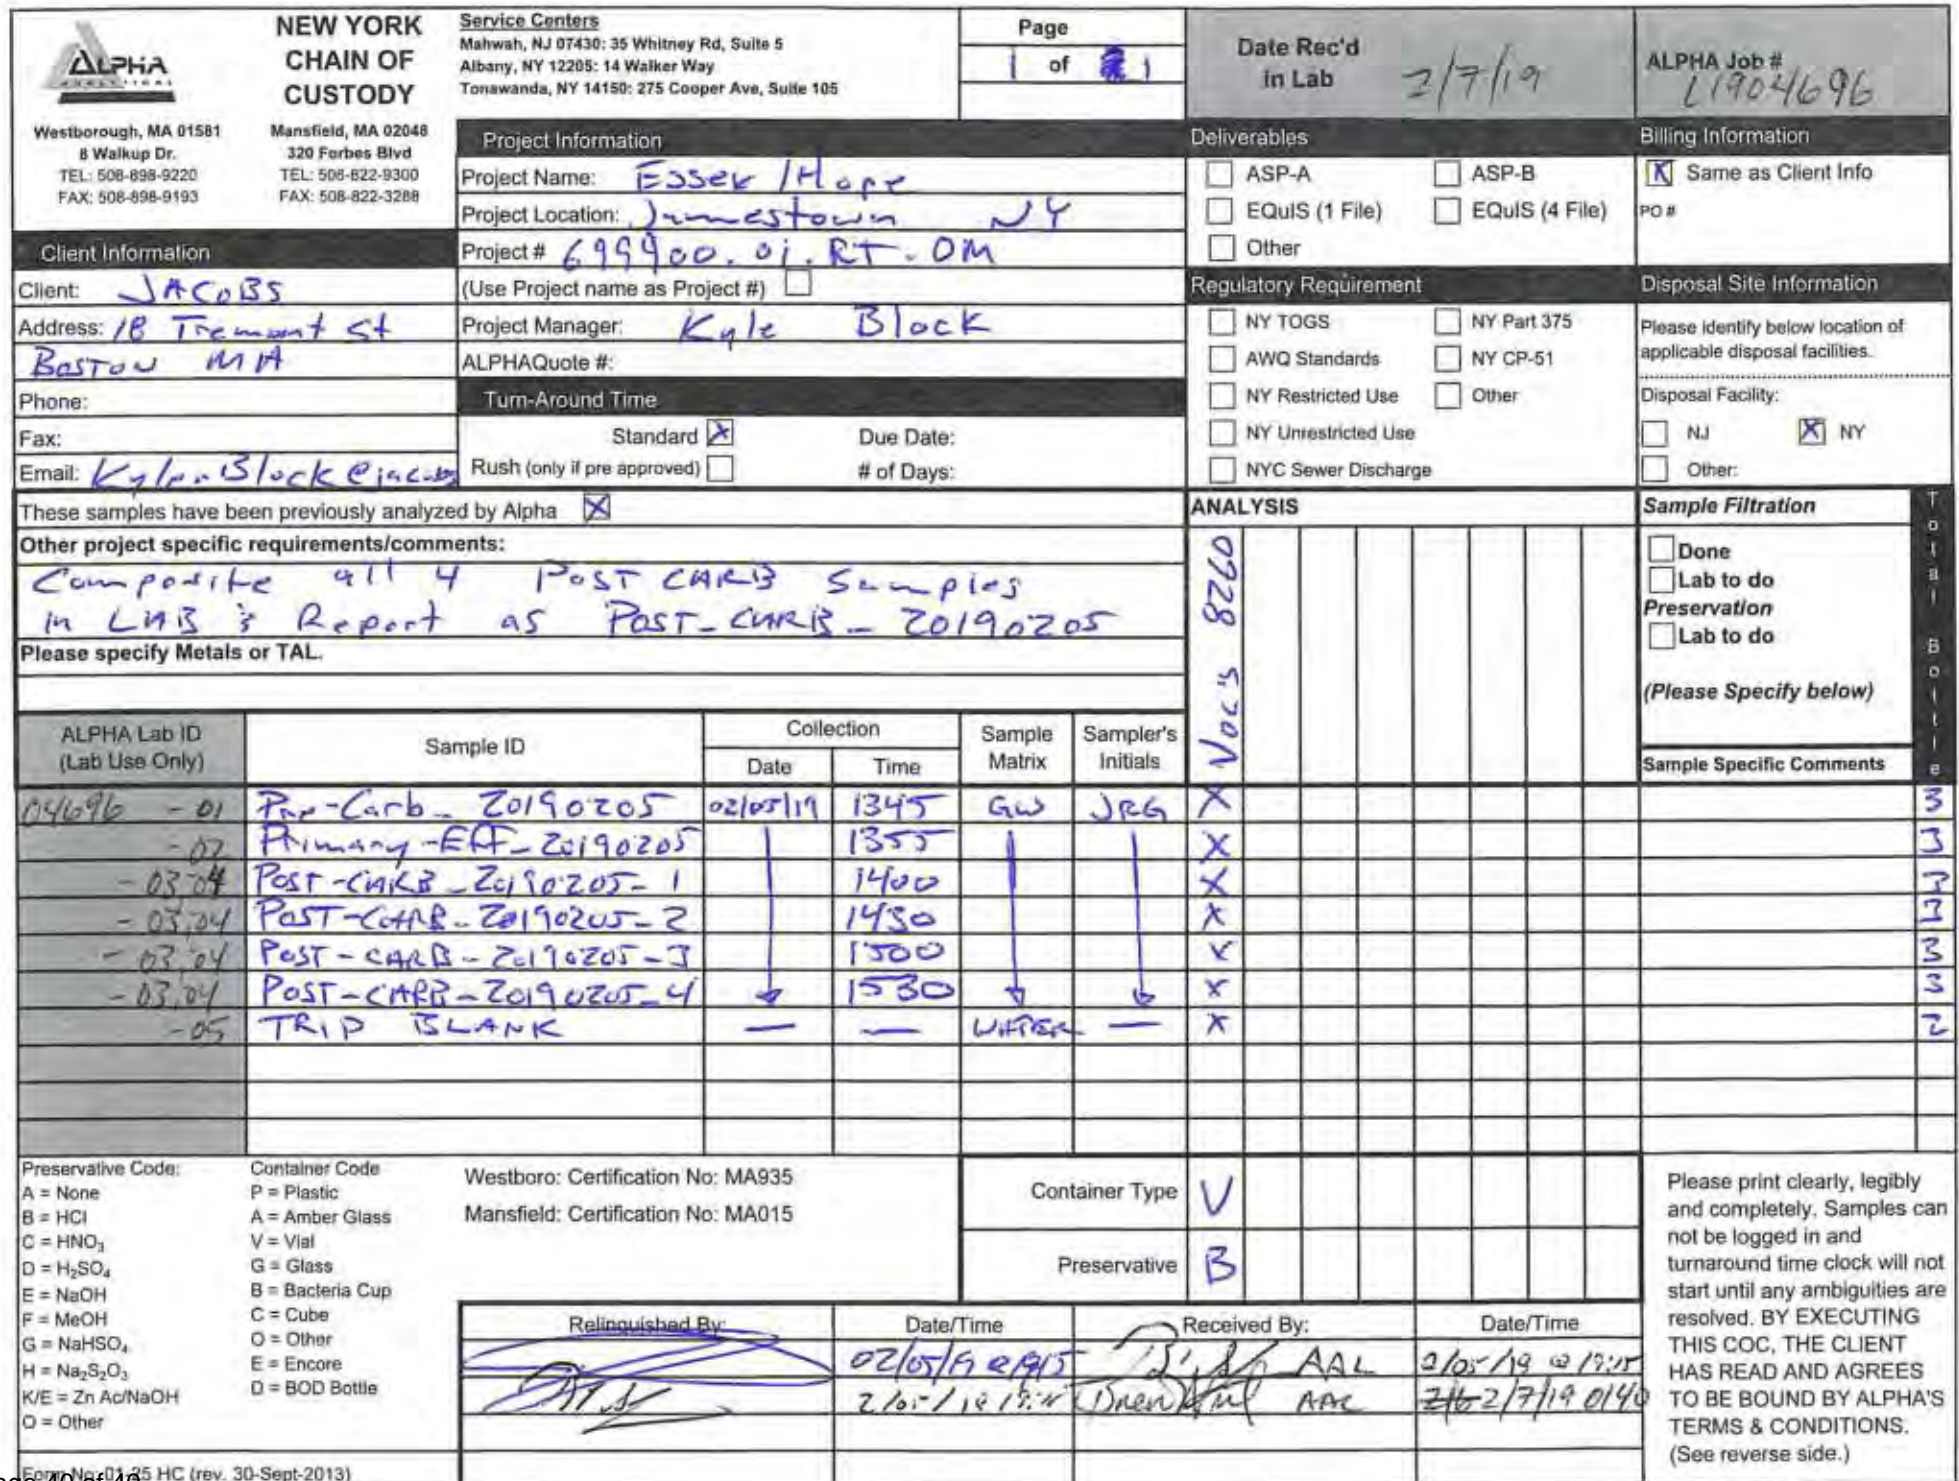 ALPHA
ANALYTICAL
Westborough, MA 01581
8 Walkup Dr.
TEL: 508-898-9220
FAX: 508-898-9193
NEW YORK
CHAIN OF
CUSTODY
Mansfield, MA 02048
320 Forbes Blvd
TEL: 508-822-9300
FAX: 508-822-3288
Service Centers
Mahwah, NJ 07430: 35 Whitney Rd, Suite 5
Albany, NY 12205: 14 Walker Way
Tonawanda, NY 14150: 275 Cooper Ave, Suite 105
Page
1 of 1
Date Rec'd
in Lab
2/7/19
ALPHA Job #
L1904696
Project Information
Project Name: Essex/Hope
Project Location: Jamestown NY
Project # 699900.01.RT.OM
(Use Project name as Project #)
Project Manager: Kyle Block
ALPHAQuote #:
Client Information
Client: JACOBS
Address: 18 Tremont St
BOSTON MA
Phone:
Fax:
Email: Kyle.Block@jacobs
Turn-Around Time
Standard X Due Date:
Rush (only if pre approved) # of Days:
Deliverables
ASP-A ASP-B
EQuIS (1 File) EQuIS (4 File)
Other
Billing Information
X Same as Client Info
PO #
Regulatory Requirement
NY TOGS NY Part 375
AWQ Standards NY CP-51
NY Restricted Use Other
NY Unrestricted Use
NYC Sewer Discharge
Disposal Site Information
Please identify below location of
applicable disposal facilities.
Disposal Facility:
NJ X NY
Other:
These samples have been previously analyzed by Alpha X
Other project specific requirements/comments:
Composite all 4 POST CARB Samples
in LAB & Report as POST-CARB-20190205
Please specify Metals or TAL.
ANALYSIS
VOC's 8260
Sample Filtration
Done
Lab to do
Preservation
Lab to do
(Please Specify below)
Total Bottle
ALPHA Lab ID
(Lab Use Only)
Sample ID
Collection
Date Time
Sample
Matrix
Sampler's
Initials
Sample Specific Comments
04696 -01 Pre-Carb_20190205 02/05/19 1345 GW JRG X 3
-02 Primary-Eff_20190205 1355 X 3
-03,04 POST-CARB_20190205-1 1400 X 3
-03,04 POST-CARB-20190205-2 1430 X 3
-03,04 POST-CARB-20190205-3 1500 X 3
-03,04 POST-CARB-20190205-4 1530 X 3
-05 TRIP BLANK — — WATER — X 2
Preservative Code:
A = None
B = HCl
C = HNO3
D = H2SO4
E = NaOH
F = MeOH
G = NaHSO4
H = Na2S2O3
K/E = Zn Ac/NaOH
O = Other
Container Code
P = Plastic
A = Amber Glass
V = Vial
G = Glass
B = Bacteria Cup
C = Cube
O = Other
E = Encore
D = BOD Bottle
Westboro: Certification No: MA935
Mansfield: Certification No: MA015
Container Type V
Preservative B
Relinquished By: Date/Time Received By: Date/Time
02/05/19 @1915 AAL 2/05/19 @ 19:15
2/05/19 AAL 2/7/19 0140
Please print clearly, legibly
and completely. Samples can
not be logged in and
turnaround time clock will not
start until any ambiguities are
resolved. BY EXECUTING
THIS COC, THE CLIENT
HAS READ AND AGREES
TO BE BOUND BY ALPHA'S
TERMS & CONDITIONS.
(See reverse side.)
Form No: 01-25 HC (rev. 30-Sept-2013)